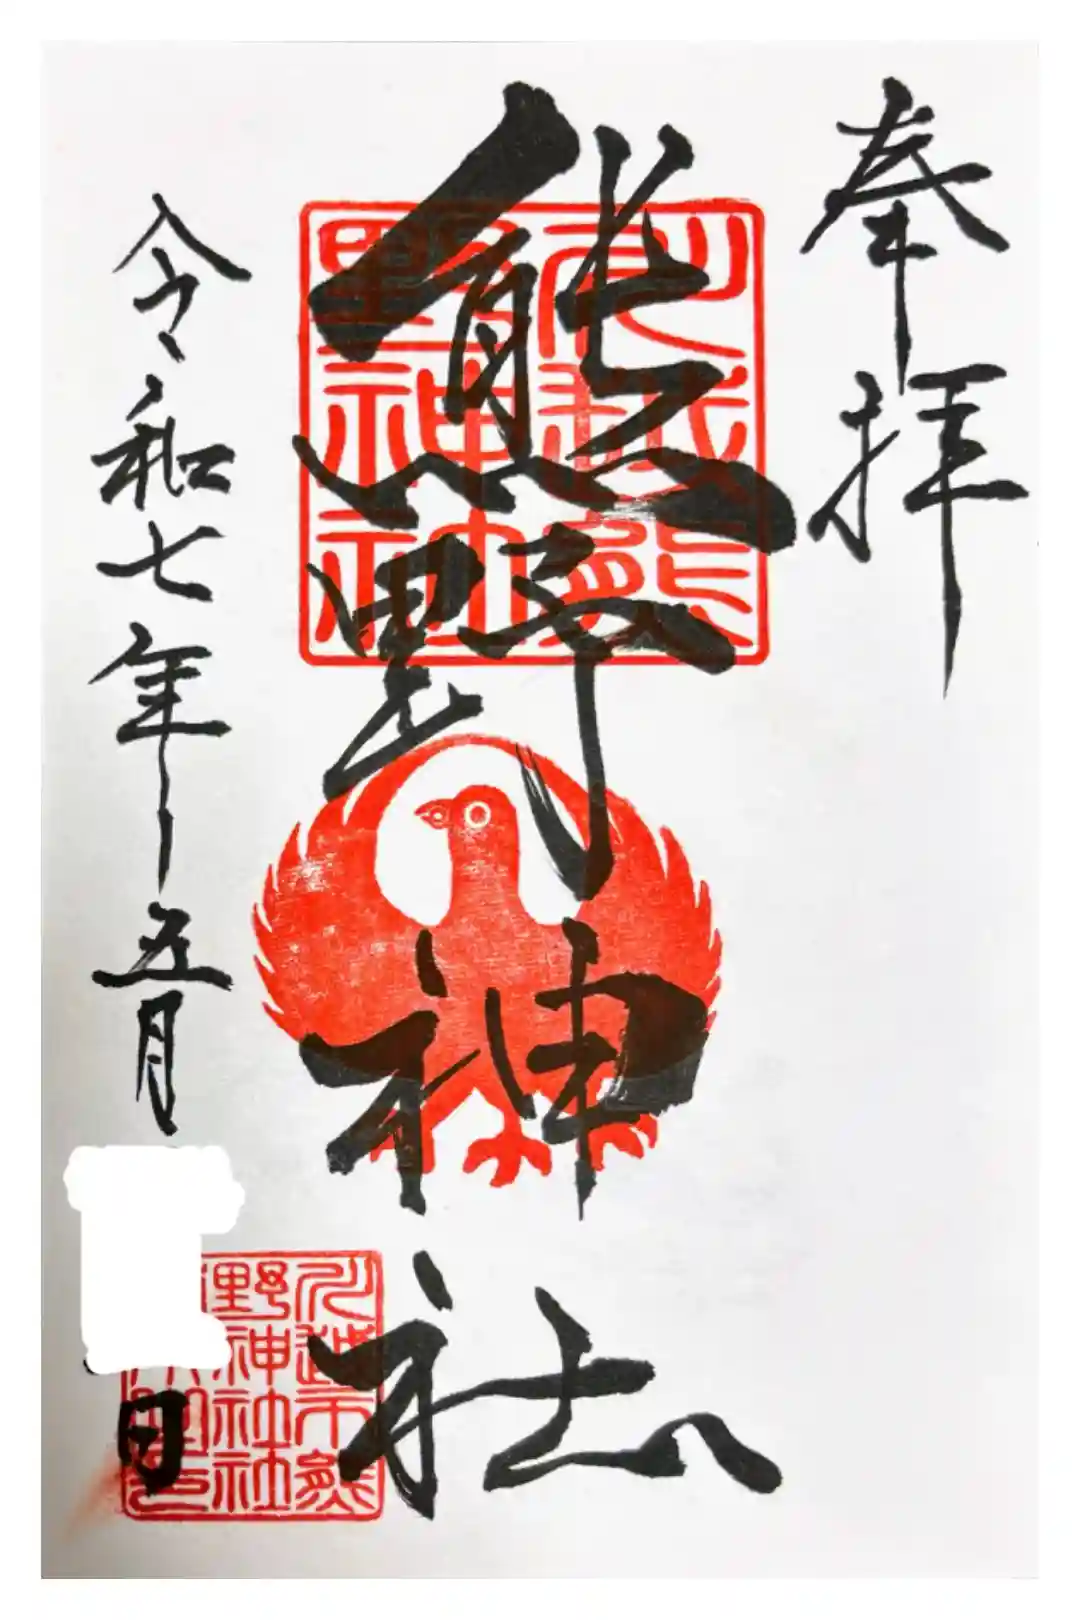 奉拝
熊野神社
令和七年五月
日
川越熊
野神社
川越市熊
野神社社